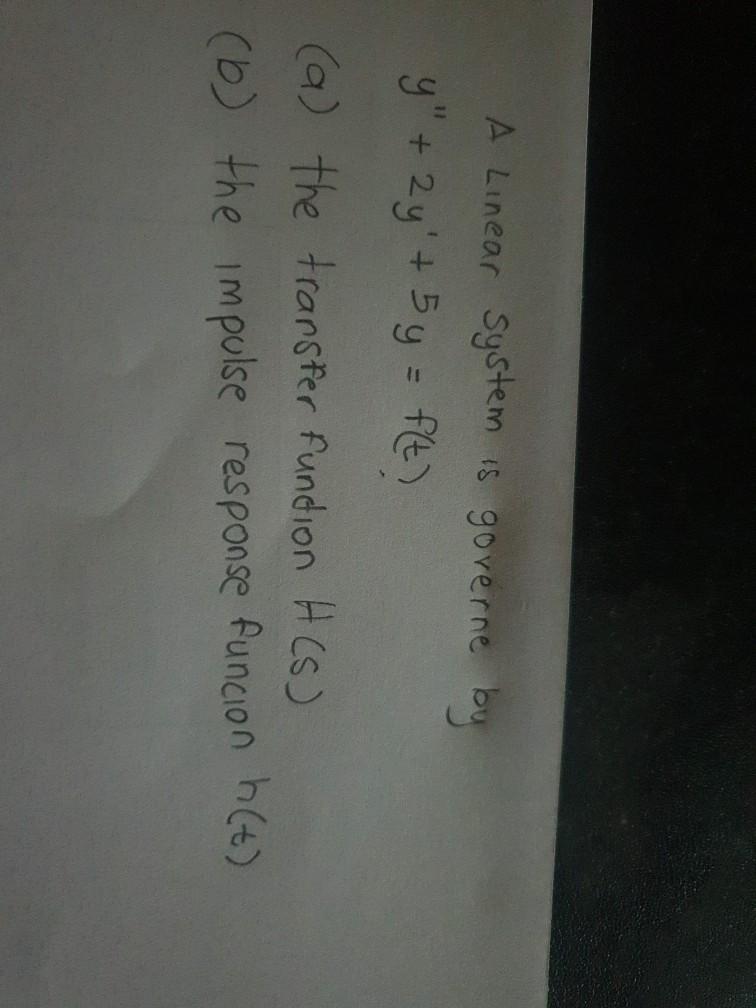 A Linear System is governe by
y" + 2y' + 5y = f(t)
(a) the transfer fundion H(s)
(b) the impulse response funcion h(t)